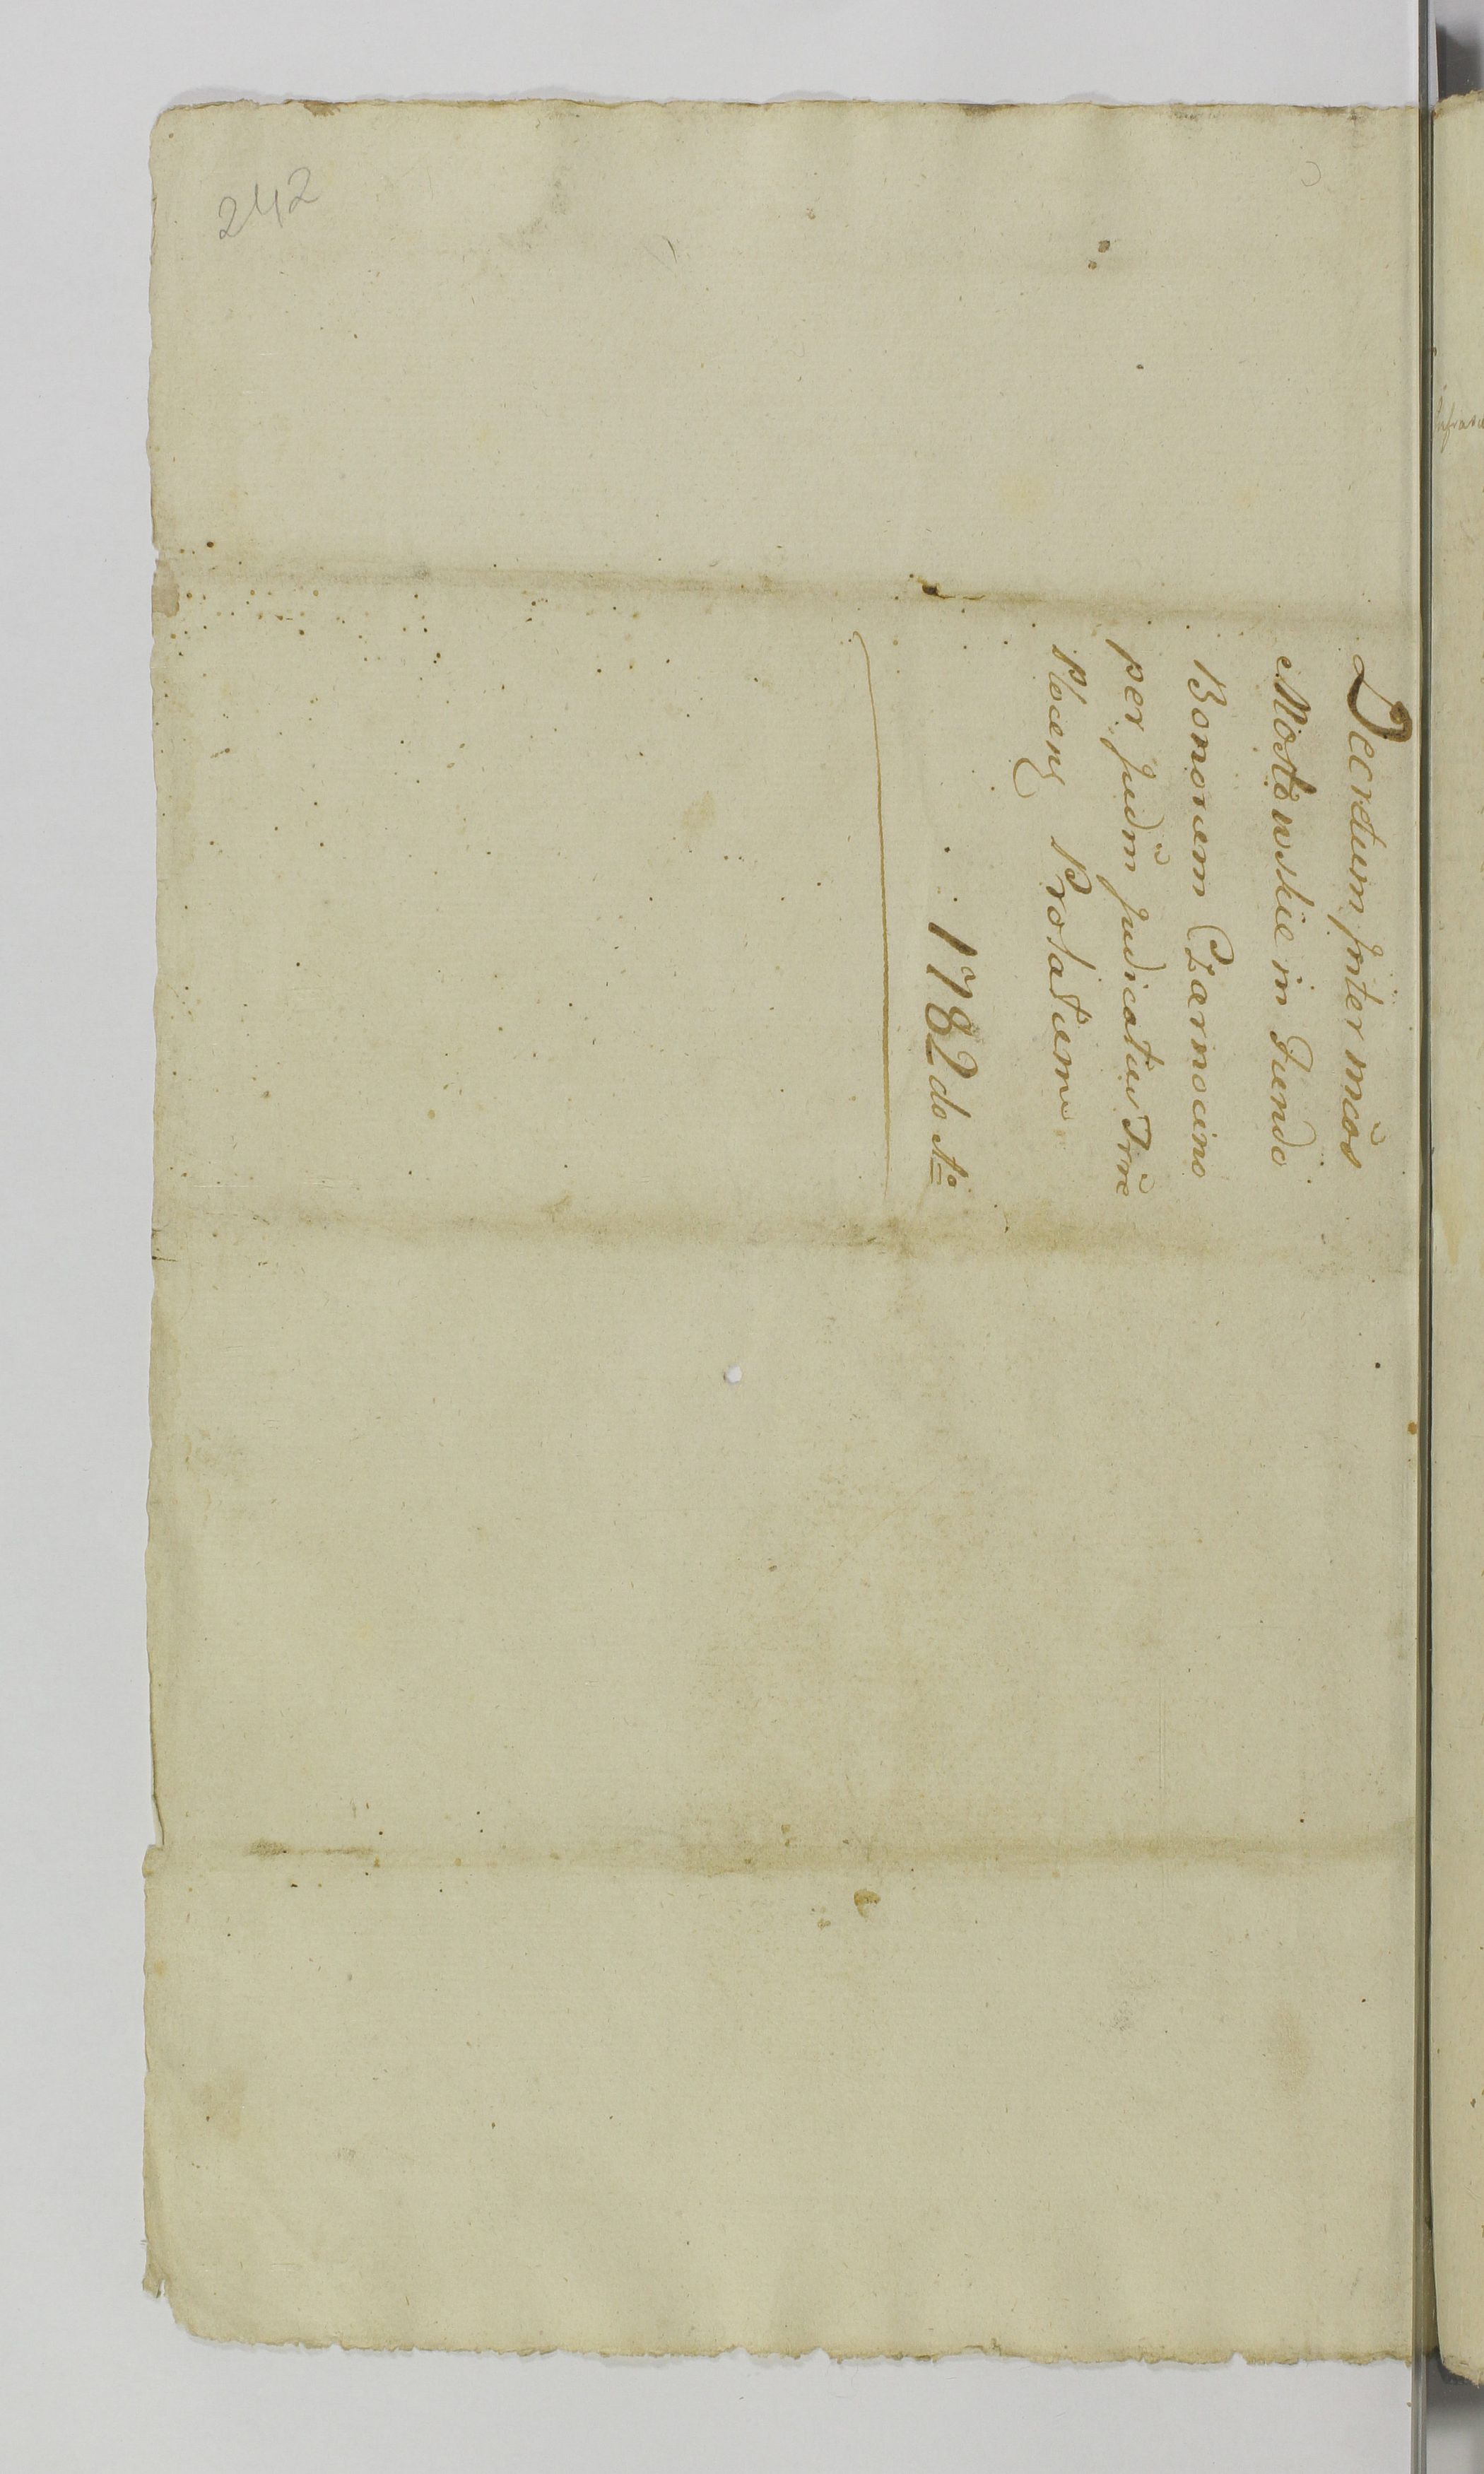 242
Decretum Inter mcos
Mostowskie in Fundo
Bonorum Czarnocino
per Judm Judicatus Trrē
Plocens Prolatum
1782do Ao